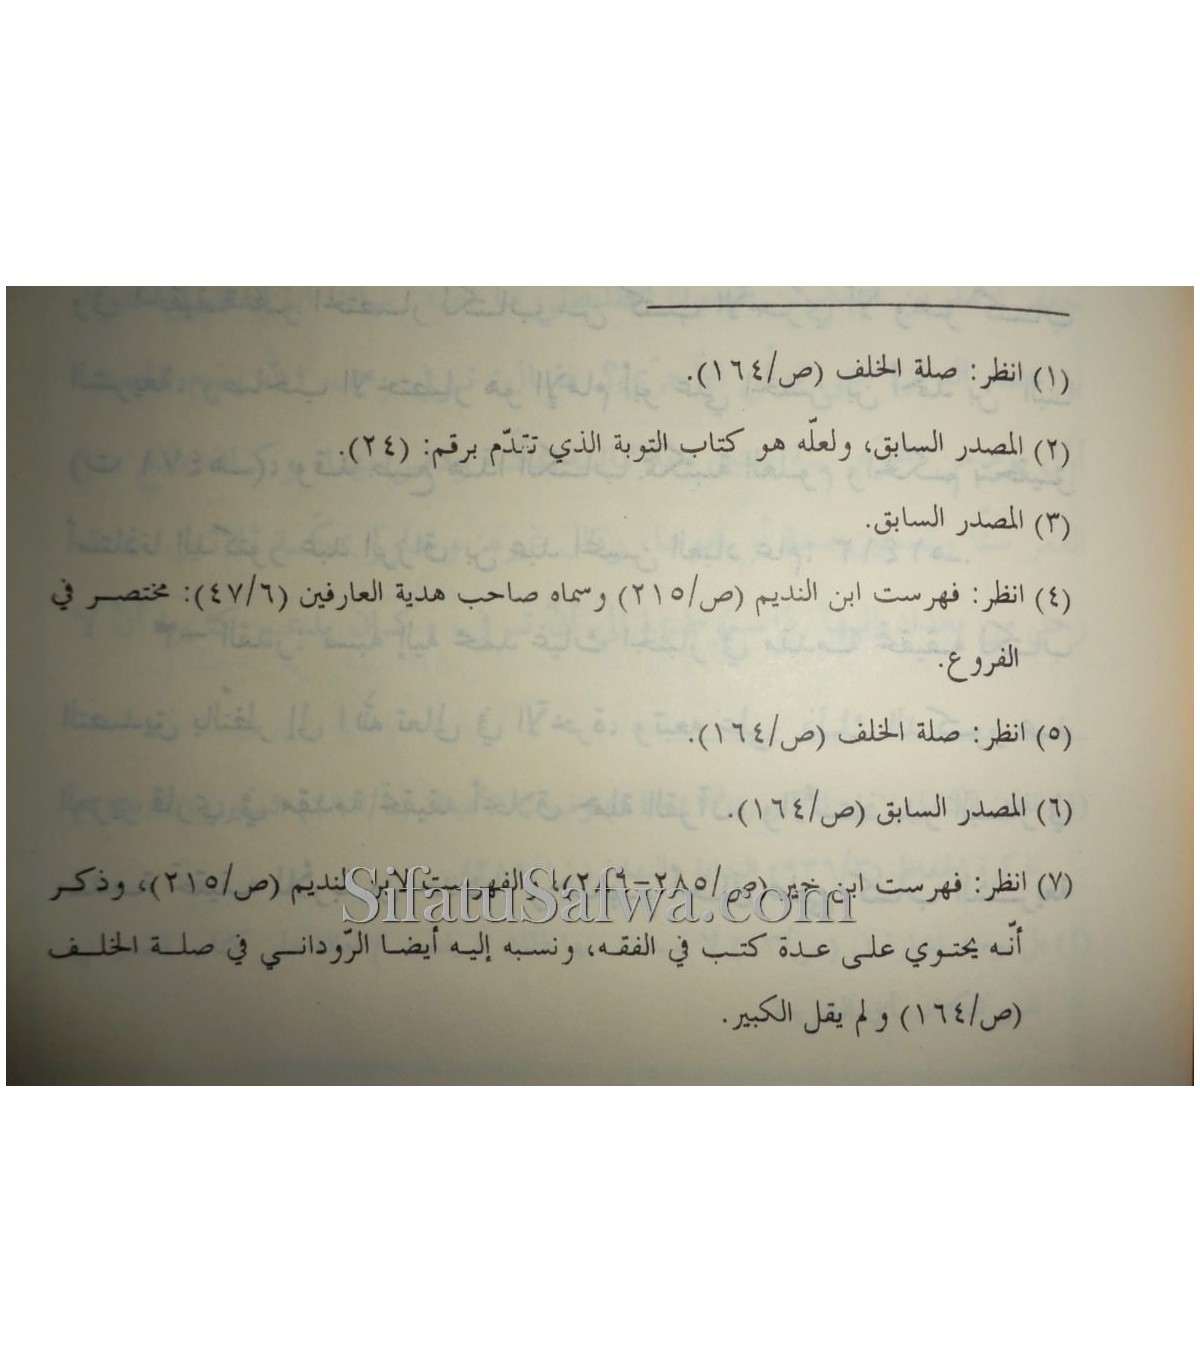 (١) انظر: صلة الخلف (ص/١٦٤).
(٢) المصدر السابق، ولعلّه هو كتاب التوبة الذي تقدّم برقم: (٢٤).
(٣) المصدر السابق.
(٤) انظر: فهرست ابن النديم (ص/٢١٥) وسماه صاحب هدية العارفين (٤٧/٦): مختصر في
الفروع.
(٥) انظر: صلة الخلف (ص/١٦٤).
(٦) المصدر السابق (ص/١٦٤).
(٧) انظر: فهرست ابن خير (ص/٢٨٥-٢٨٦)، والفهرست لابن النديم (ص/٢١٥)، وذكر
SifatuSafwa.com
أنّه يحتوي على عدة كتب في الفقه، ونسبه إليه أيضا الرّوداني في صلة الخلف
(ص/١٦٤) ولم يقل الكبير.